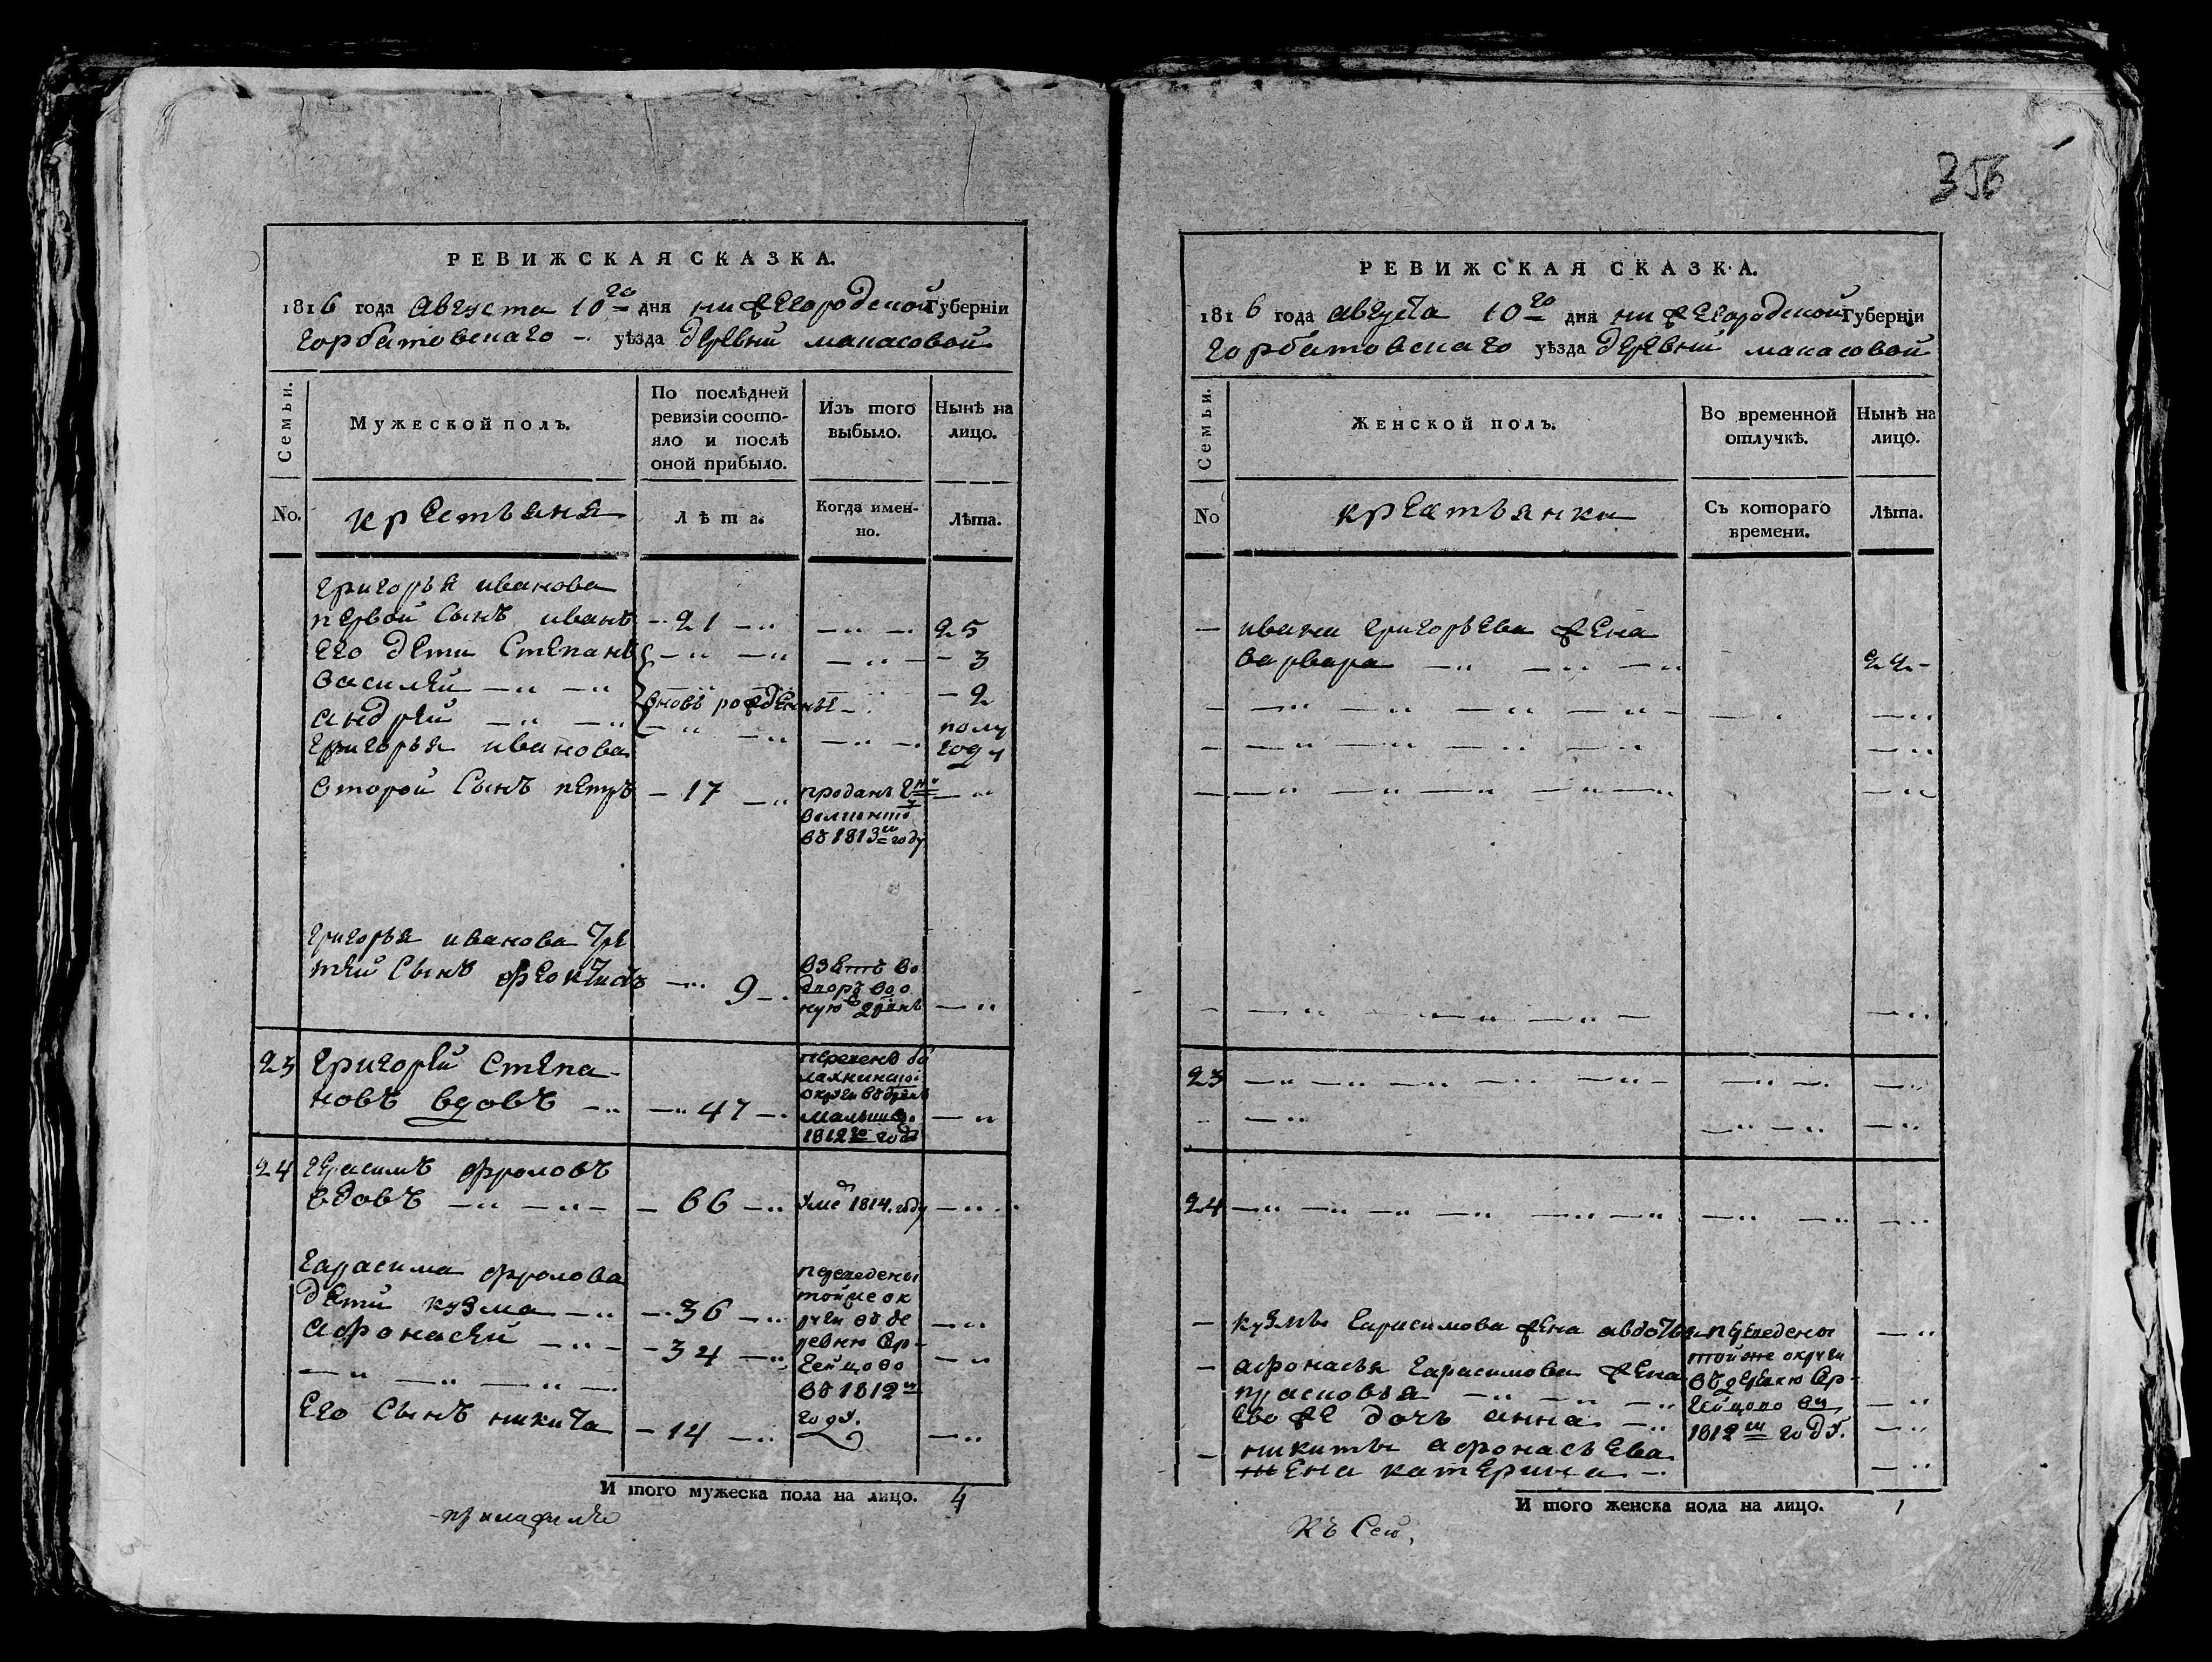 356
РЕВИЖСКАЯ СКАЗКА.
1816 года Августа 10го дня нижегородской губернiи
горбатовскаго уѣзда деревни макасовой
Семьи.
Мужеской полъ.
По послѣдней ревизiи состояло и послѣ оной прибыло.
Изъ того выбыло.
Нынѣ на лицо.
No.
крестьяня
Лѣта.
Когда именно.
Лѣта.
григорья иванова
первой сынъ иванъ 21 25
его дети степанъ 3
василей 2
вновь рожденны
андрей полу
григорья иванова году
второй сынъ петръ 17 проданъ
въ 1813м году
григорья иванова тре
тей сынъ феоктистъ 9 взетъ во
дворъ
23 григорей степа
новъ вдовъ 47
1812го года
24 герасимъ фроловъ
вдовъ 66 умре 1814 году
гарасима фролова
дети кузма 36
афонасей 34
его сынъ никита 14
переведены
тойже ок
руги въ де
ревню
въ 1812м
году.
И того мужеска пола на лицо. 4
РЕВИЖСКАЯ СКАЗКА.
1816 года августа 10го дня нижегородской губернiи
горбатовскаго уѣзда деревни макасовой
Семьи.
Женской полъ.
Во временной отлучкѣ.
Нынѣ на лицо.
No
крестьянки
Съ котораго времени.
Лѣта.
ивана григорьева жена
варвара 22
23
24
кузмы гарасимова жена авдотья переведены
тойже округи
афонасья гарасимова жена въ деревню
прасковья
ево же дочь анна 1812м году.
никиты афонасьева
жена катерина
И того женска пола на лицо. 1
къ сей